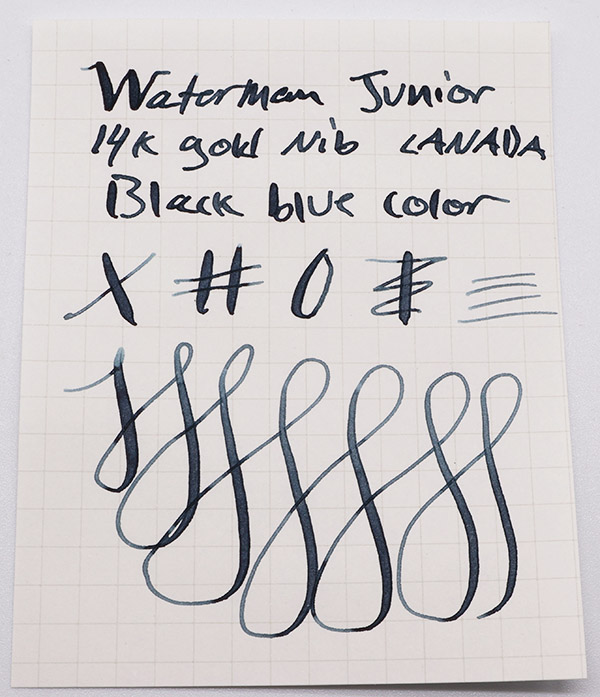 Waterman Junior
14K gold Nib CANADA
Black blue color
X # O $